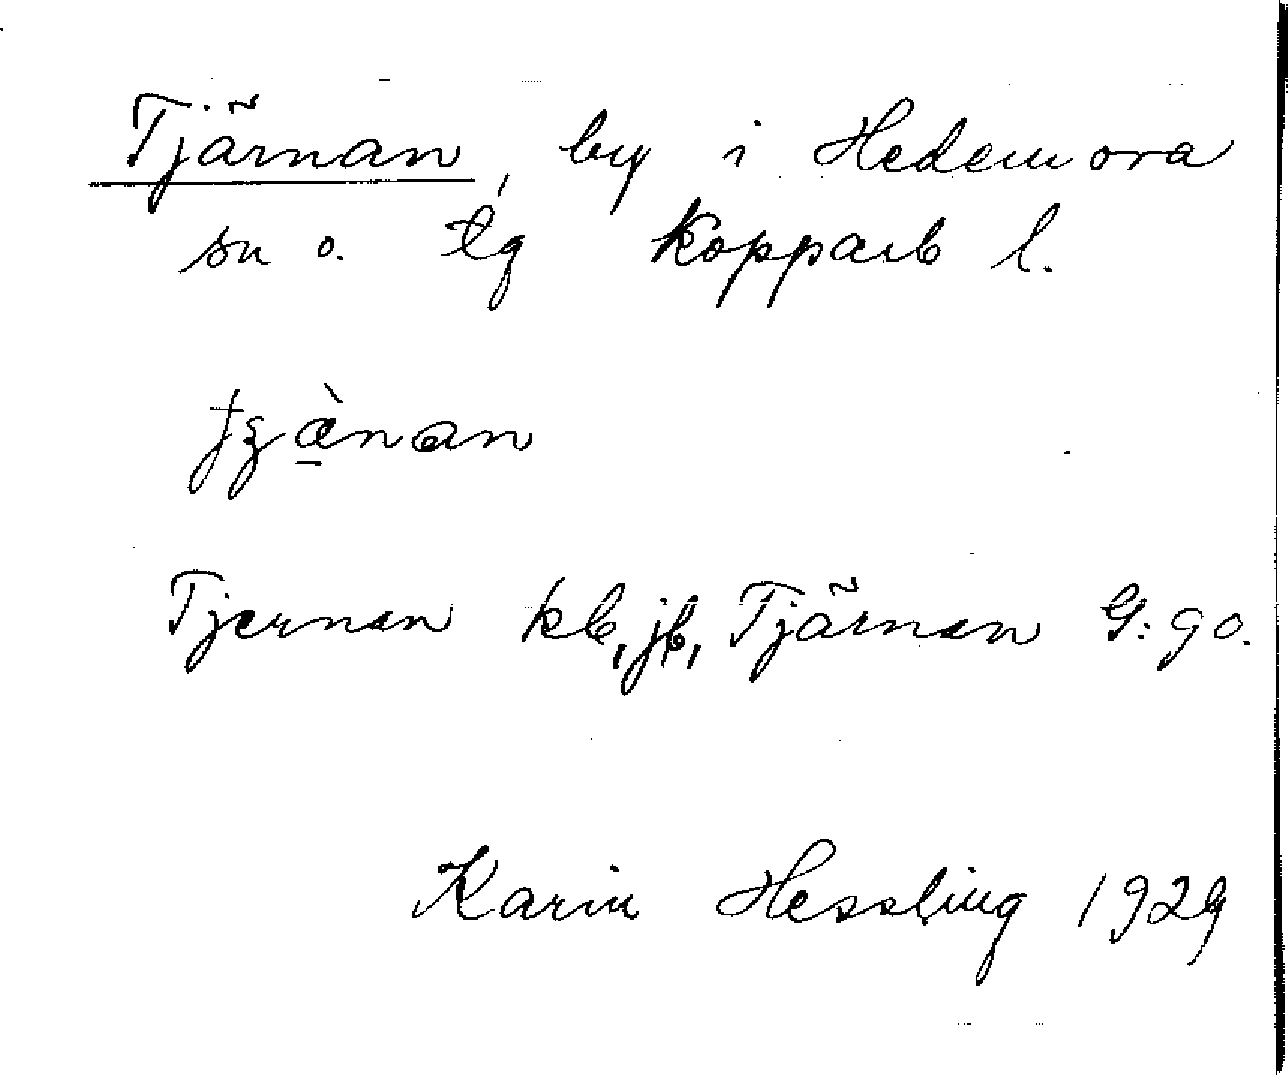 Tjärnan, by i Hedemora
sn o. tg Kopparb l.
Tjernan kb, jb, Tjärnan G: go.
Karin Hessling 1929